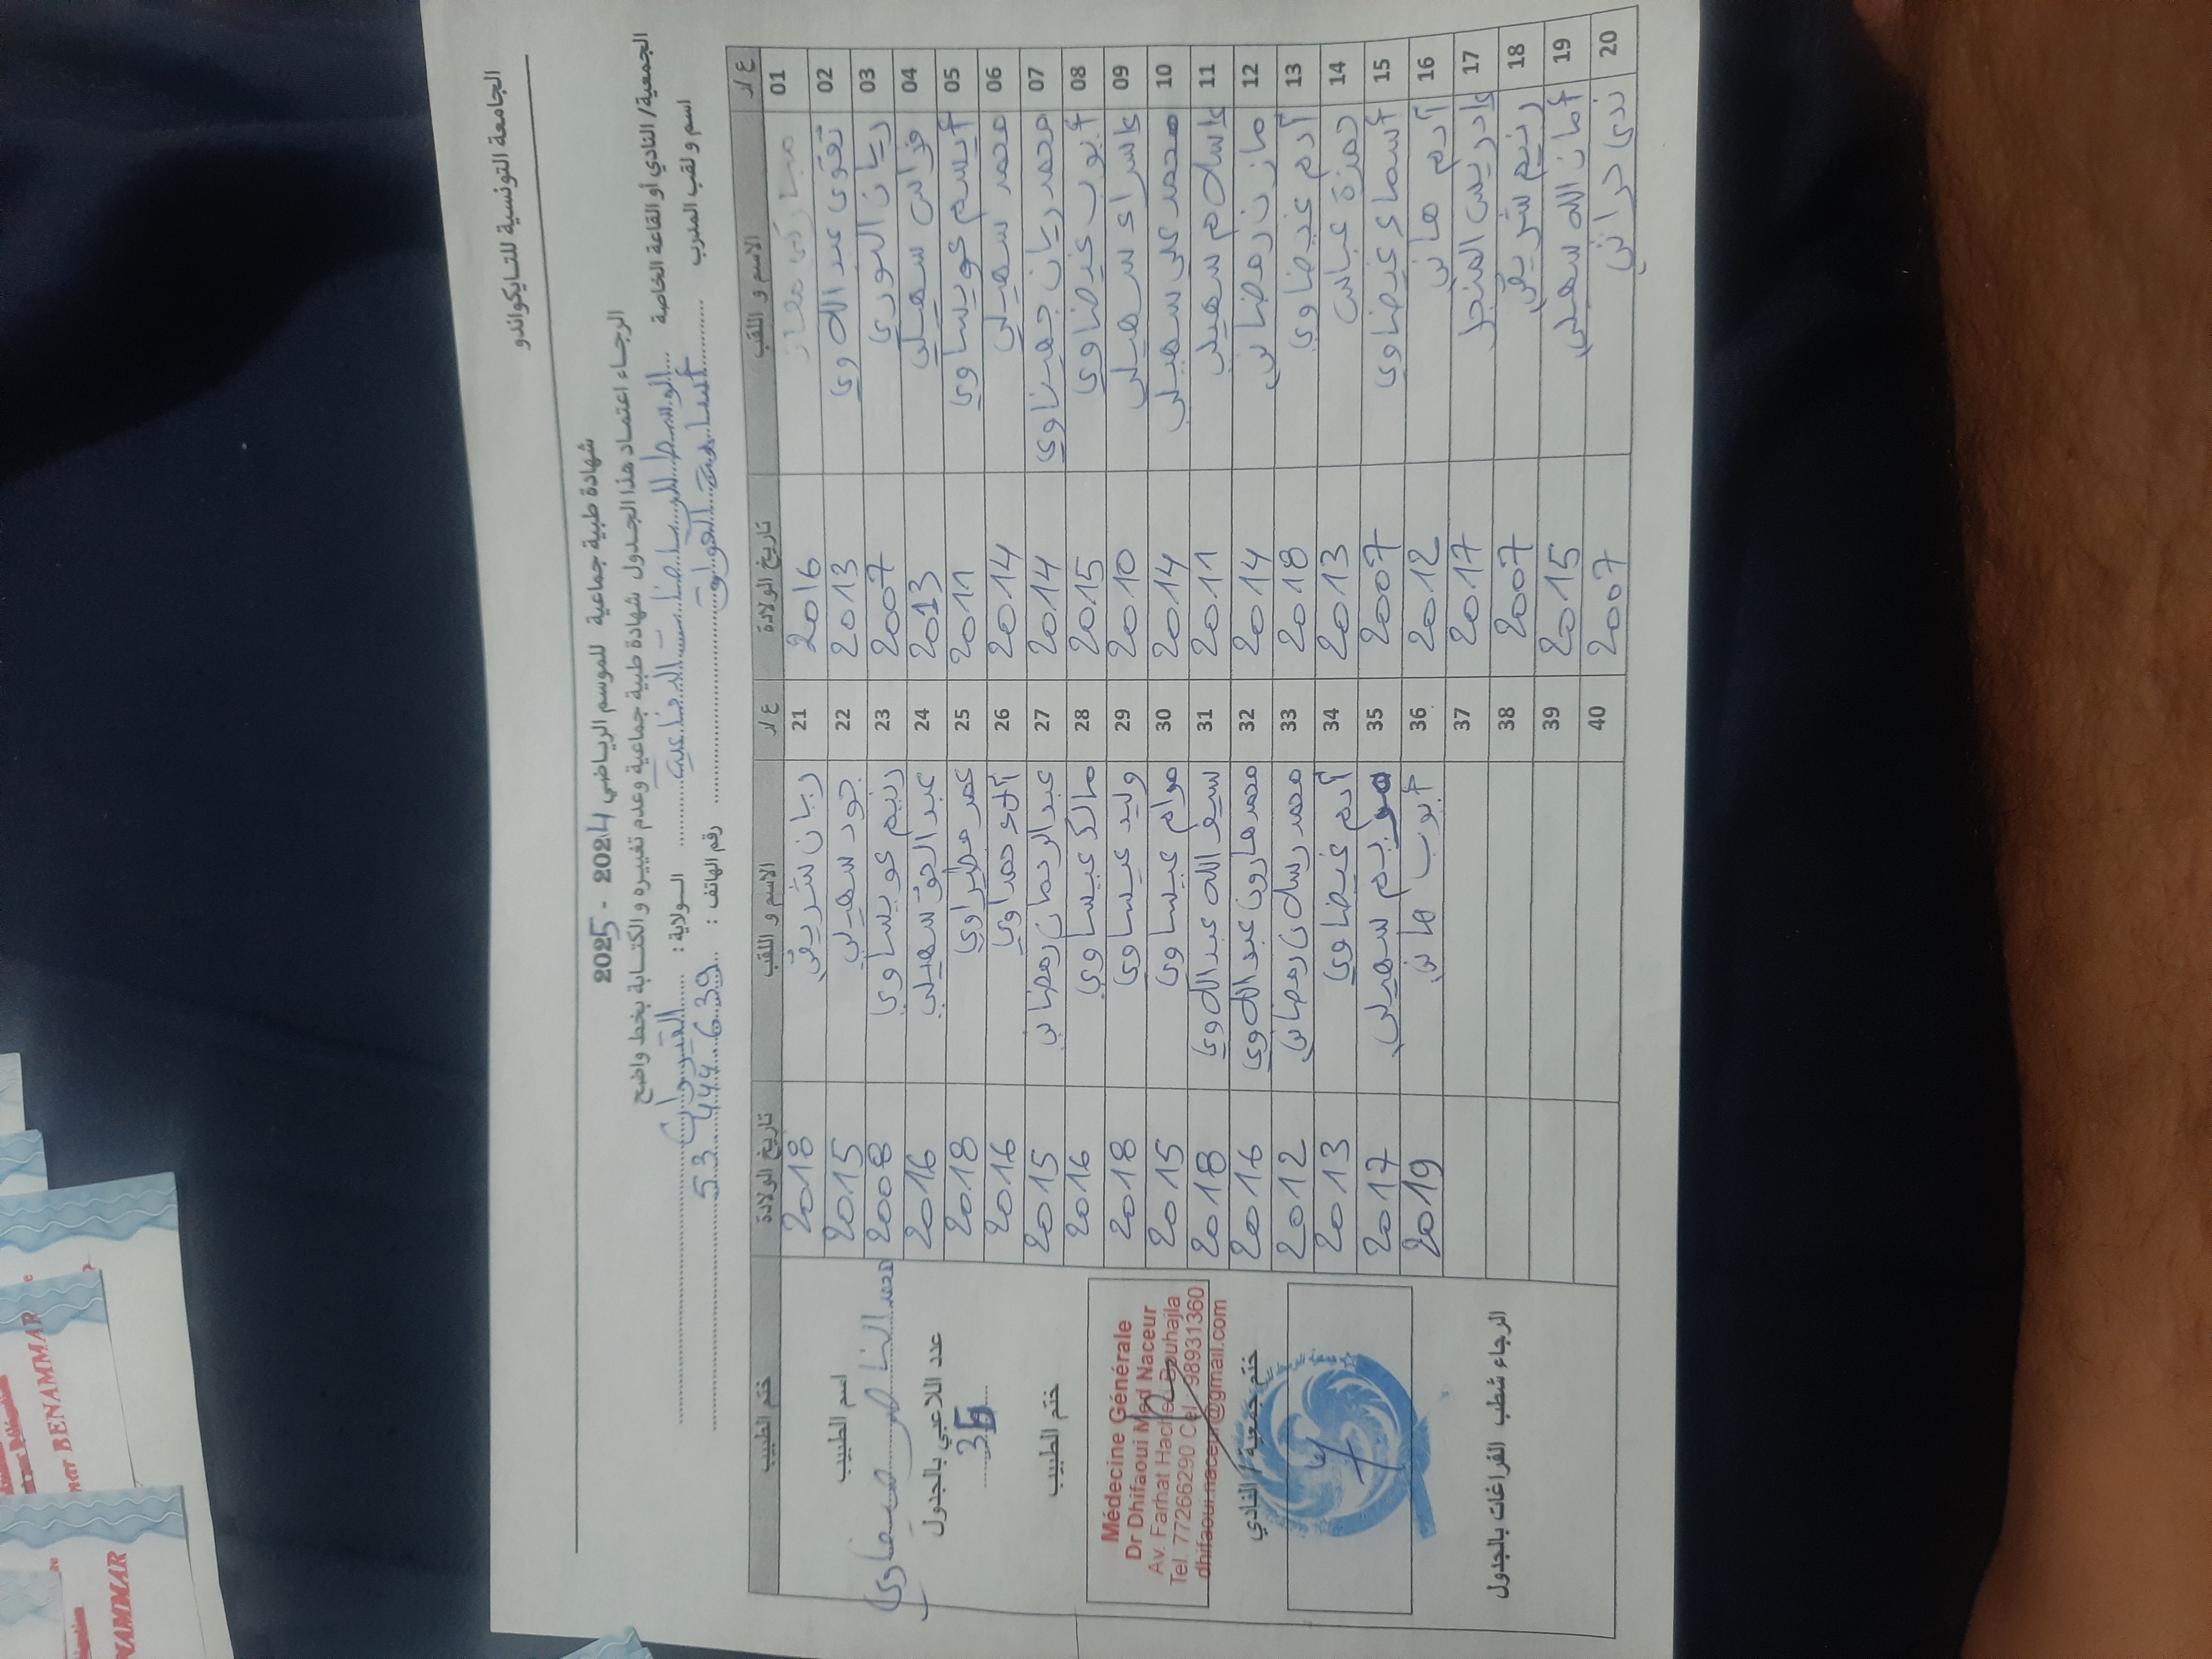 الجامعة التونسية للتايكواندو
شهادة طبية جماعية للموسم الرياضي 2024 - 2025
الرجاء اعتماد هذا الجدول شهادة طبية جماعية وعدم تغييره و الكتابة بخط واضح
الجمعية/ النادي أو القاعة الخاصة الوسط للرياضات الدفاعية الولاية : القيروان
اسم و لقب المدرب أسامة رقم الهاتف : 53 444 639
ع/ر الاسم و اللقب تاريخ الولادة ع/ر الاسم و اللقب تاريخ الولادة ختم الطبيب
01 معاز 2016 21 ريان شريقي 2018
02 تقوى عبداللاوي 2013 22 جود سهيلي 2015
03 ريان النوري 2007 23 رنيم عويساوي 2008
04 فراس سهيلي 2013 24 عبد الحق سهيلي 2016
05 أيسم عويساوي 2011 25 عمر مطراوي 2018
06 محمد سهيلي 2014 26 حمداوي 2016
07 محمد ريان جهيناوي 2014 27 عبد الرحمان رمضاني 2015
08 أيوب غيضاوي 2015 28 مالك عيساوي 2016
09 إسراء سهيلي 2010 29 وليد عيساوي 2018
10 محمد علي سهيلي 2014 30 مرام عيساوي 2015
11 إسلام سهيلي 2011 31 سيف الله عبداللاوي 2018
12 مازن رمضاني 2014 32 محمد هارون عبداللاوي 2016
13 آدم غيضاوي 2018 33 محمد رسلان رمضاني 2012
14 حمزة عباس 2013 34 آدم غيضاوي 2013
15 أسماء غيضاوي 2007 35 مريم سهيلي 2017
16 آدم هاني 2012 36 أيوب هاني 2019
17 إدريس المنجل 2017 37
18 رنيم شريقي 2007 38
19 أمان الله سهيلي 2015 39
20 ندى حراني 2007 40
اسم الطبيب
محمد الناصر ضيفاوي
عدد اللاعبي بالجدول
36
ختم الطبيب
Médecine Générale
Dr Dhifaoui Med Naceur
Av. Farhat Hached Bouhajla
Tel. 77266290 Cel. 98931360
dhifaoui.naceur@gmail.com
ختم جمعية / النادي
الرجاء شطب الفراغات بالجدول
BENAMMAR